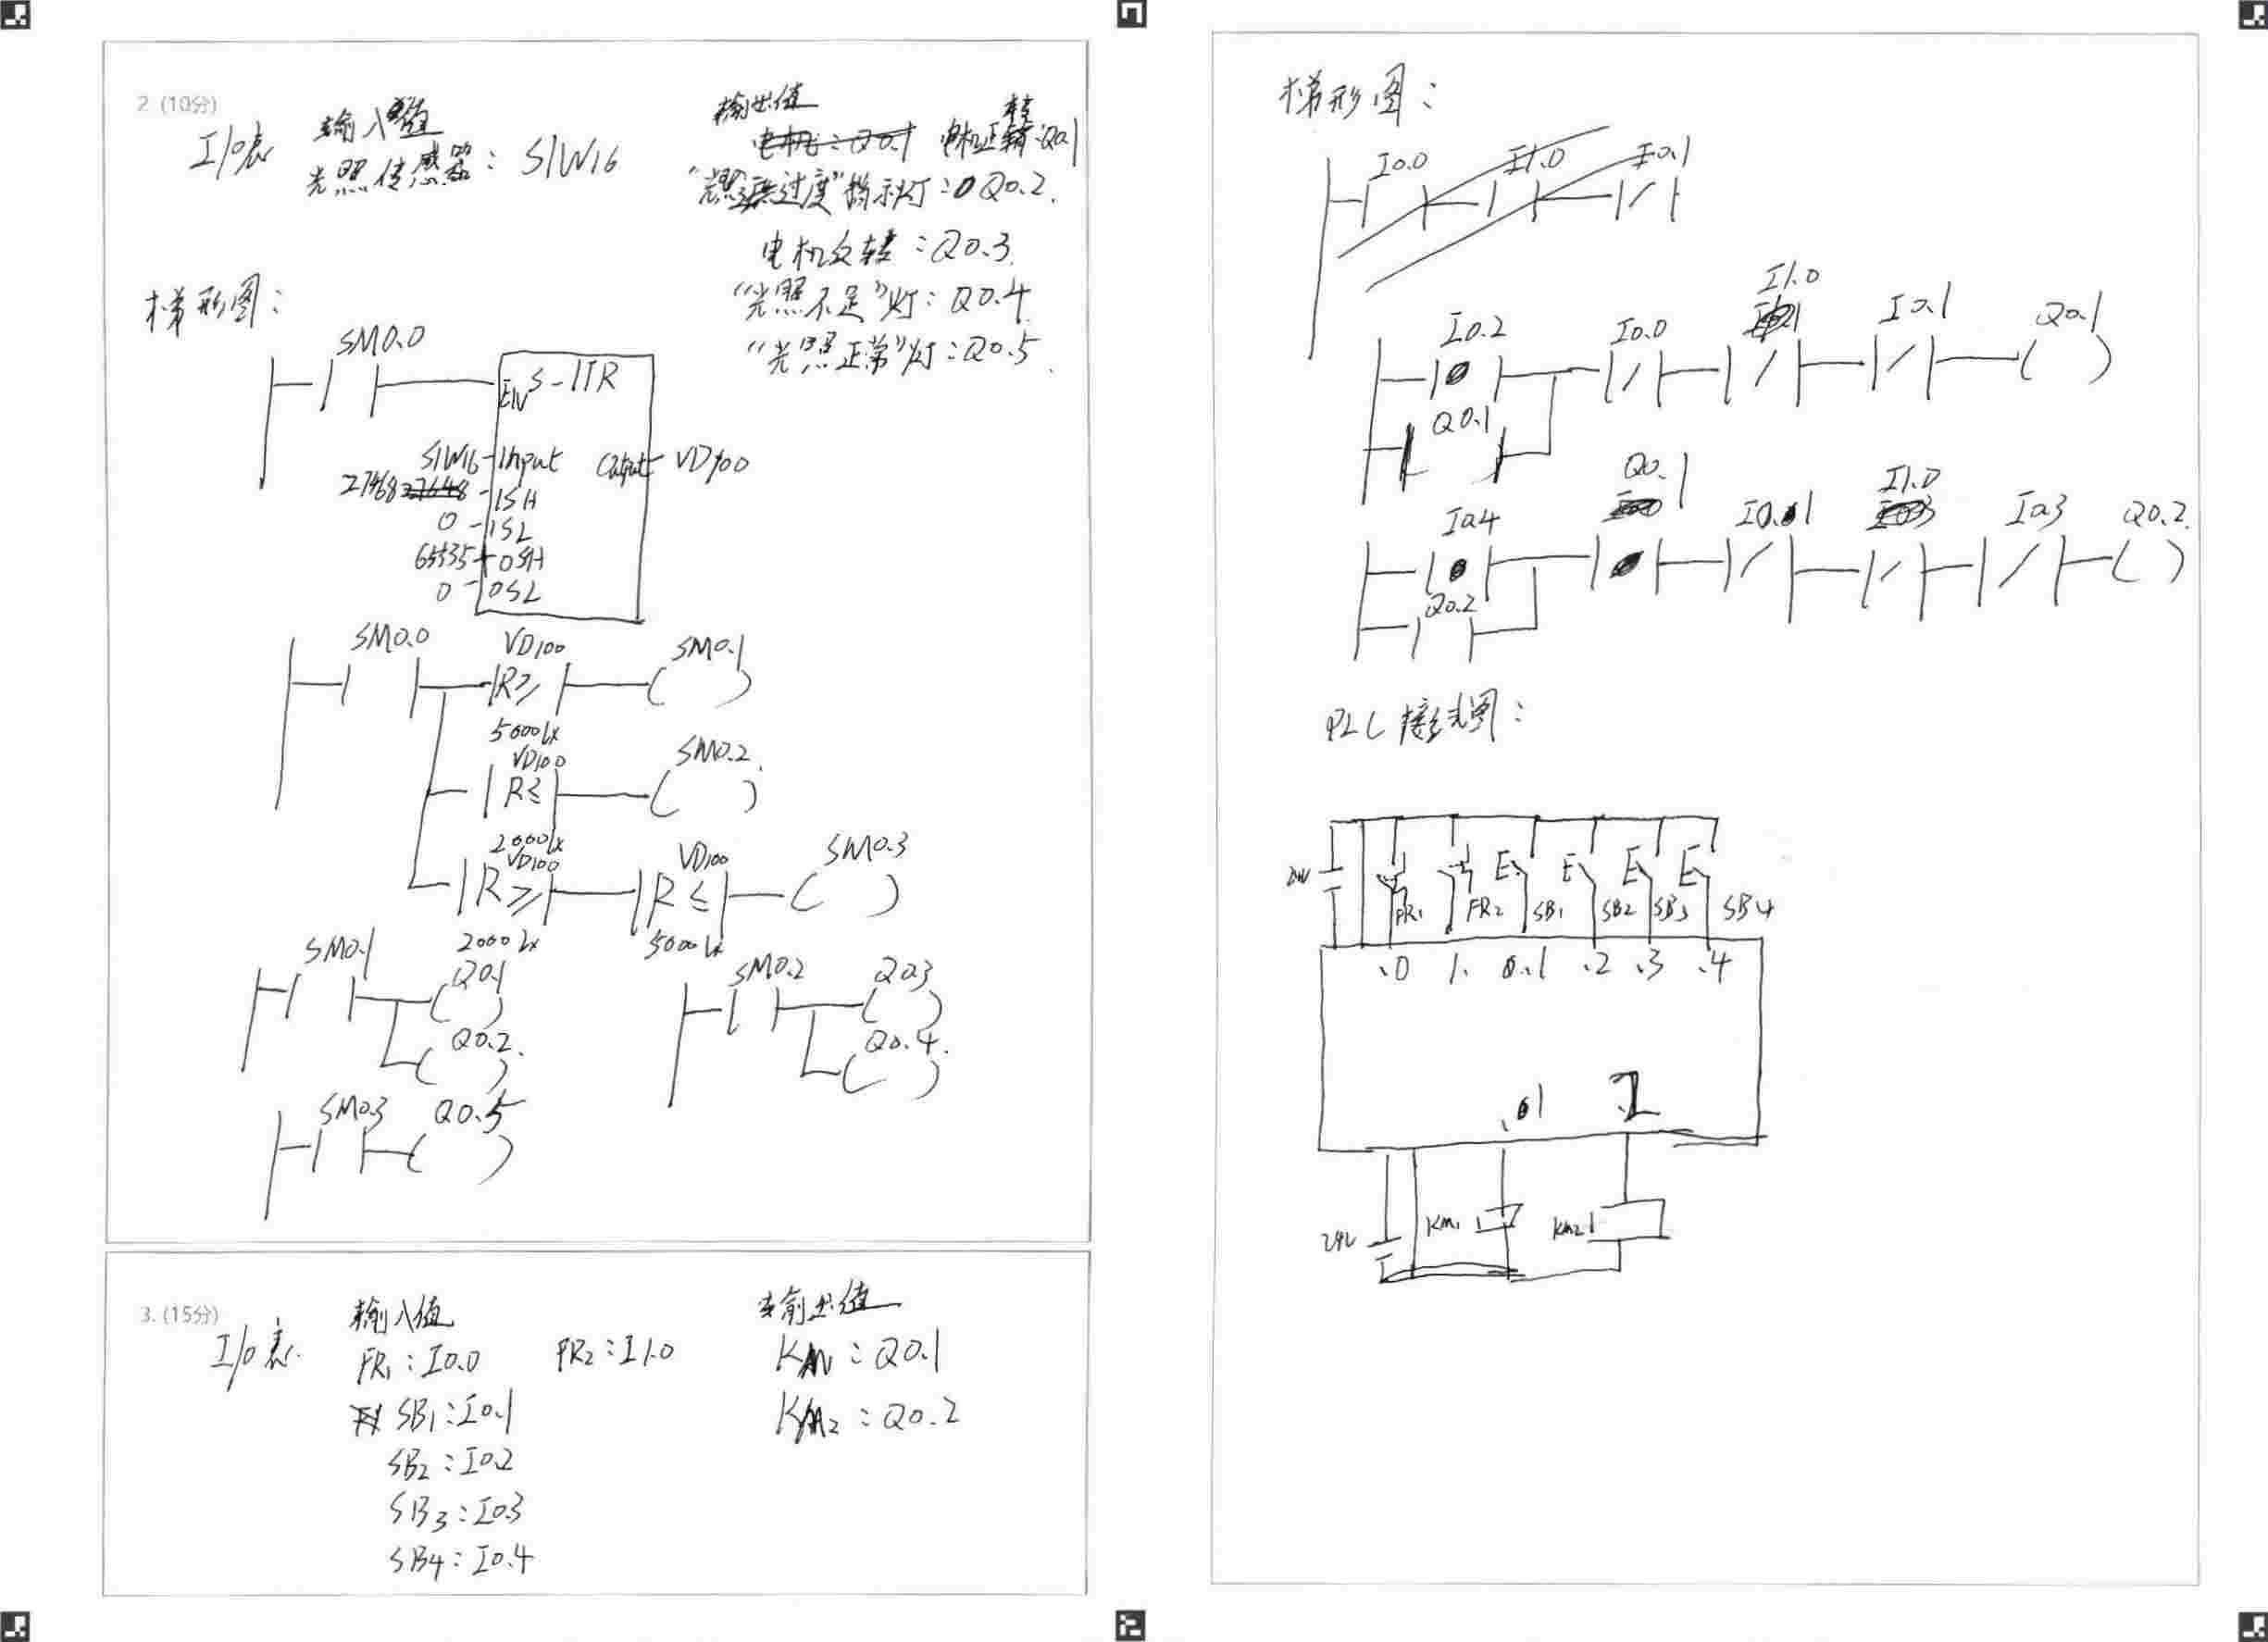 2 (10分)
I/o表
输入值
光照传感器：SIW16
输出值
电机正转:Q0.1
"光照过度"指示灯：Q0.2.
电机反转：Q0.3.
"光照不足"灯：Q0.4
"光照正常"灯：Q0.5.
梯形图：
SM0.0
S-ITR
EN
SIW16 Input Output VD100
27468 ISH
0 ISL
65535 OSH
0 OSL
SM0.0 VD100 SM0.1
R≥
5000Lx
VD100 SM0.2.
R≤
2000Lx
VD100 VD100 SM0.3
R≥ R≤
2000Lx 5000Lx
SM0.1 Q0.1
Q0.2.
SM0.2 Q0.3
Q0.4.
SM0.3 Q0.5
3. (15分)
I/o表.
输入值
FR1：I0.0 FR2：I1.0
SB1：I0.1
SB2：I0.2
SB3：I0.3
SB4：I0.4
输出值
KM1：Q0.1
KM2：Q0.2
梯形图：
I0.0 I1.0 I0.1
I0.2 I0.0 I1.0 I0.1 Q0.1
Q0.1
I0.4 Q0.1 I0.1 I1.0 I0.3 Q0.2.
Q0.2
PLC接线图：
FR1 FR2 SB1 SB2 SB3 SB4
.0 1. 0.1 .2 .3 .4
.1 .2
24V KM1 KM2